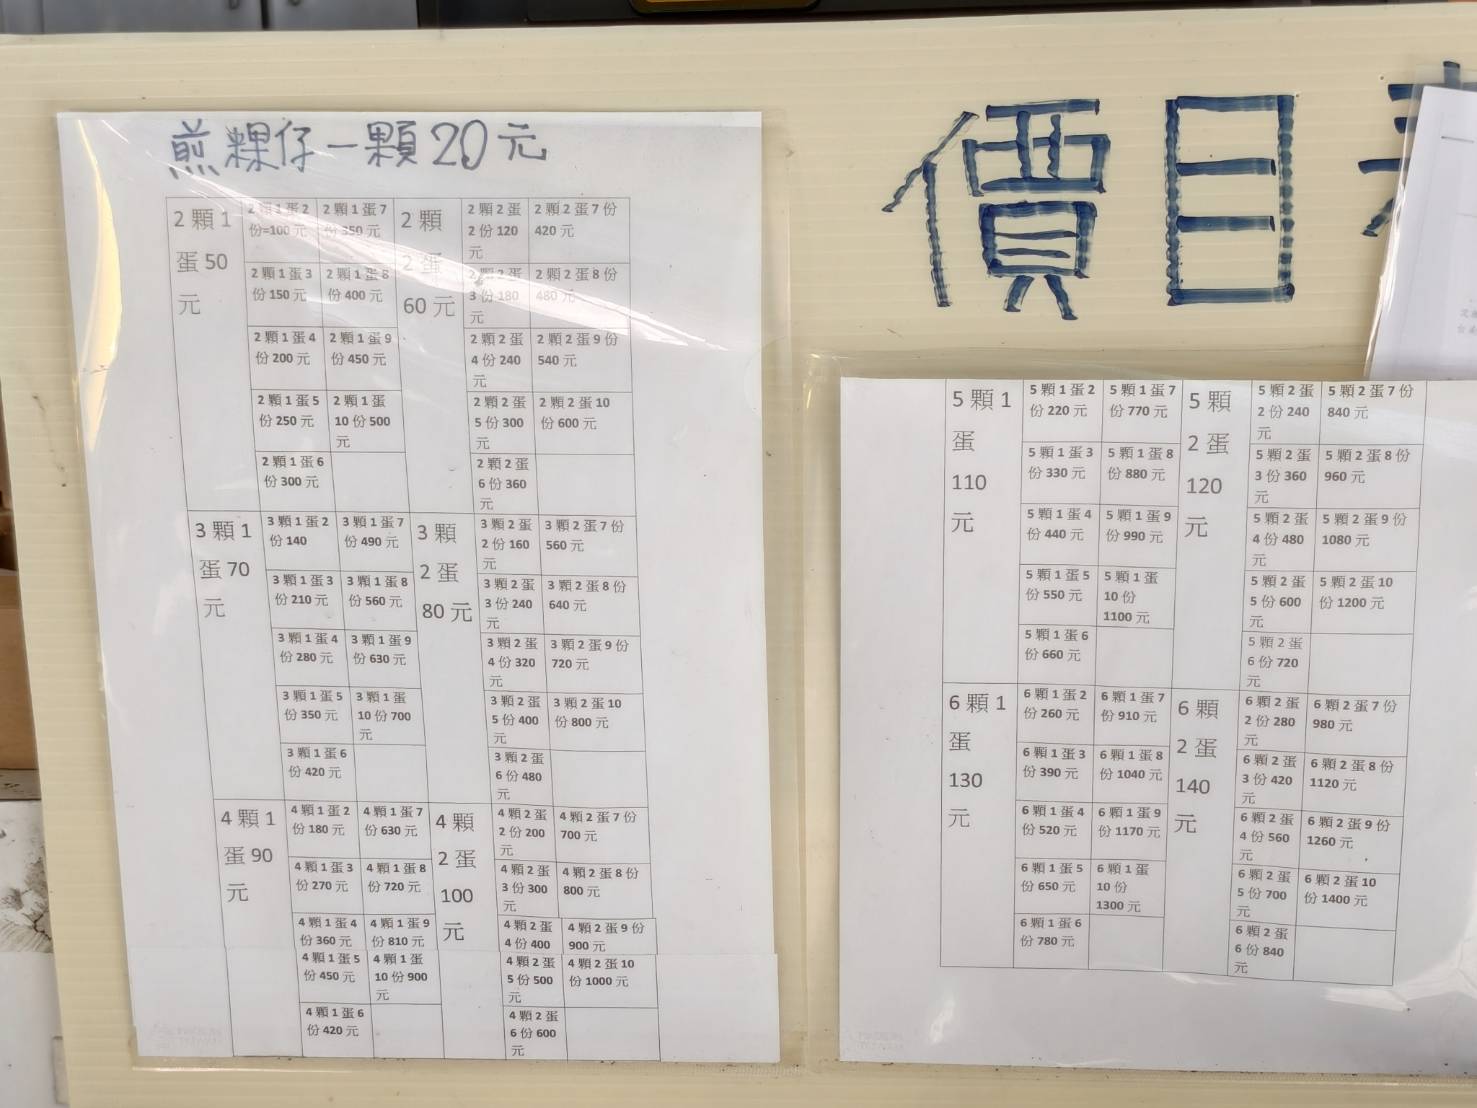 煎粿仔一顆20元
2 顆 1
蛋 50
元
2 顆 1 蛋 2
份=100 元
2 顆 1 蛋 7
份 350 元
2 顆
2 蛋
60 元
2 顆 2 蛋
2 份 120
元
2 顆 2 蛋 7 份
420 元
2 顆 1 蛋 3
份 150 元
2 顆 1 蛋 8
份 400 元
2 顆 2 蛋
3 份 180
元
2 顆 2 蛋 8 份
480 元
2 顆 1 蛋 4
份 200 元
2 顆 1 蛋 9
份 450 元
2 顆 2 蛋
4 份 240
元
2 顆 2 蛋 9 份
540 元
2 顆 1 蛋 5
份 250 元
2 顆 1 蛋
10 份 500
元
2 顆 2 蛋
5 份 300
元
2 顆 2 蛋 10
份 600 元
2 顆 1 蛋 6
份 300 元
2 顆 2 蛋
6 份 360
元
3 顆 1
蛋 70
元
3 顆 1 蛋 2
份 140
3 顆 1 蛋 7
份 490 元
3 顆
2 蛋
80 元
3 顆 2 蛋
2 份 160
元
3 顆 2 蛋 7 份
560 元
3 顆 1 蛋 3
份 210 元
3 顆 1 蛋 8
份 560 元
3 顆 2 蛋
3 份 240
元
3 顆 2 蛋 8 份
640 元
3 顆 1 蛋 4
份 280 元
3 顆 1 蛋 9
份 630 元
3 顆 2 蛋
4 份 320
元
3 顆 2 蛋 9 份
720 元
3 顆 1 蛋 5
份 350 元
3 顆 1 蛋
10 份 700
元
3 顆 2 蛋
5 份 400
元
3 顆 2 蛋 10
份 800 元
3 顆 1 蛋 6
份 420 元
3 顆 2 蛋
6 份 480
元
4 顆 1
蛋 90
元
4 顆 1 蛋 2
份 180 元
4 顆 1 蛋 7
份 630 元
4 顆
2 蛋
100
元
4 顆 2 蛋
2 份 200
元
4 顆 2 蛋 7 份
700 元
4 顆 1 蛋 3
份 270 元
4 顆 1 蛋 8
份 720 元
4 顆 2 蛋
3 份 300
元
4 顆 2 蛋 8 份
800 元
4 顆 1 蛋 4
份 360 元
4 顆 1 蛋 9
份 810 元
4 顆 2 蛋
4 份 400
4 顆 2 蛋 9 份
900 元
4 顆 1 蛋 5
份 450 元
4 顆 1 蛋
10 份 900
元
4 顆 2 蛋
5 份 500
元
4 顆 2 蛋 10
份 1000 元
4 顆 1 蛋 6
份 420 元
4 顆 2 蛋
6 份 600
元
價目
5 顆 1
蛋
110
元
5 顆 1 蛋 2
份 220 元
5 顆 1 蛋 7
份 770 元
5 顆
2 蛋
120
元
5 顆 2 蛋
2 份 240
元
5 顆 2 蛋 7 份
840 元
5 顆 1 蛋 3
份 330 元
5 顆 1 蛋 8
份 880 元
5 顆 2 蛋
3 份 360
元
5 顆 2 蛋 8 份
960 元
5 顆 1 蛋 4
份 440 元
5 顆 1 蛋 9
份 990 元
5 顆 2 蛋
4 份 480
元
5 顆 2 蛋 9 份
1080 元
5 顆 1 蛋 5
份 550 元
5 顆 1 蛋
10 份
1100 元
5 顆 2 蛋
5 份 600
元
5 顆 2 蛋 10
份 1200 元
5 顆 1 蛋 6
份 660 元
5 顆 2 蛋
6 份 720
元
6 顆 1
蛋
130
元
6 顆 1 蛋 2
份 260 元
6 顆 1 蛋 7
份 910 元
6 顆
2 蛋
140
元
6 顆 2 蛋
2 份 280
元
6 顆 2 蛋 7 份
980 元
6 顆 1 蛋 3
份 390 元
6 顆 1 蛋 8
份 1040 元
6 顆 2 蛋
3 份 420
元
6 顆 2 蛋 8 份
1120 元
6 顆 1 蛋 4
份 520 元
6 顆 1 蛋 9
份 1170 元
6 顆 2 蛋
4 份 560
元
6 顆 2 蛋 9 份
1260 元
6 顆 1 蛋 5
份 650 元
6 顆 1 蛋
10 份
1300 元
6 顆 2 蛋
5 份 700
元
6 顆 2 蛋 10
份 1400 元
6 顆 1 蛋 6
份 780 元
6 顆 2 蛋
6 份 840
元